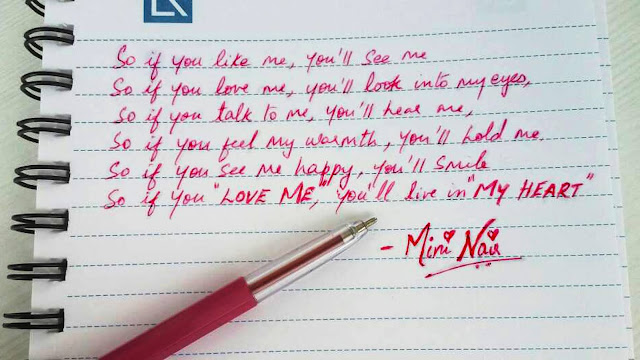 So if you like me, you'll see me
So if you love me, you'll look into my eyes,
So if you talk to me, you'll hear me,
So if you feel my warmth, you'll hold me.
So if you see me happy, you'll smile
So if you "LOVE ME," you'll live in "MY HEART"
- Mini Nair